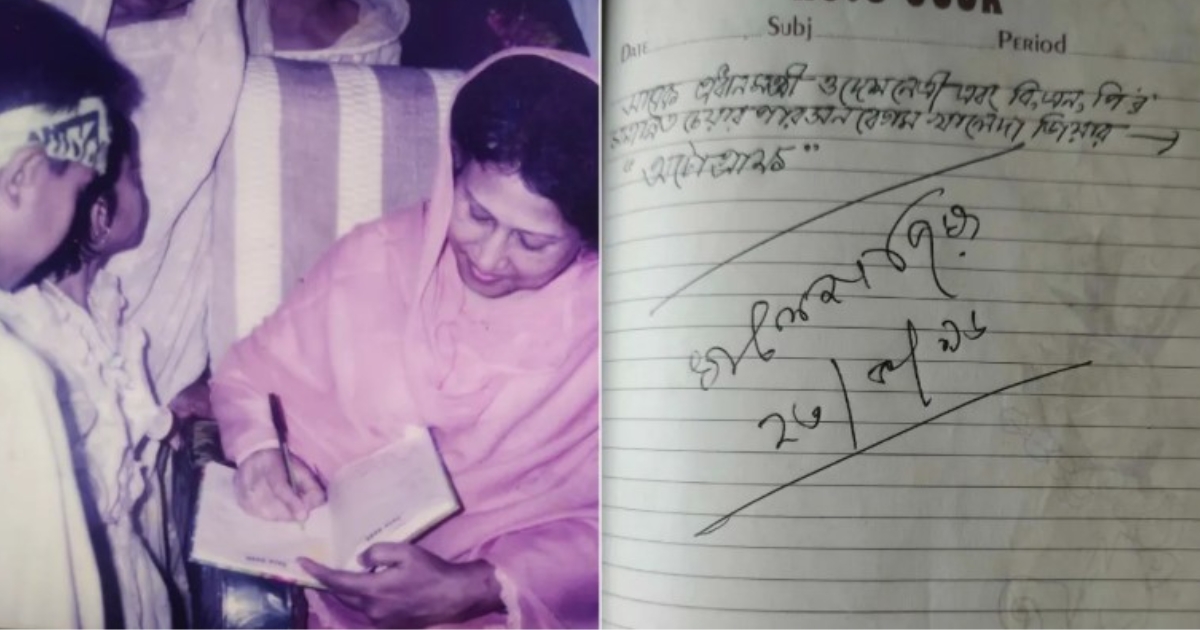 Subj
DATE
PERIOD
সাবেক প্রধানমন্ত্রী ও দেশনেত্রী এবং বি, এন, পি'র
সম্মানিত চেয়ার পারসন বেগম খালেদা জিয়ার →
"অটোগ্রাফ"
খালেদা জিয়া